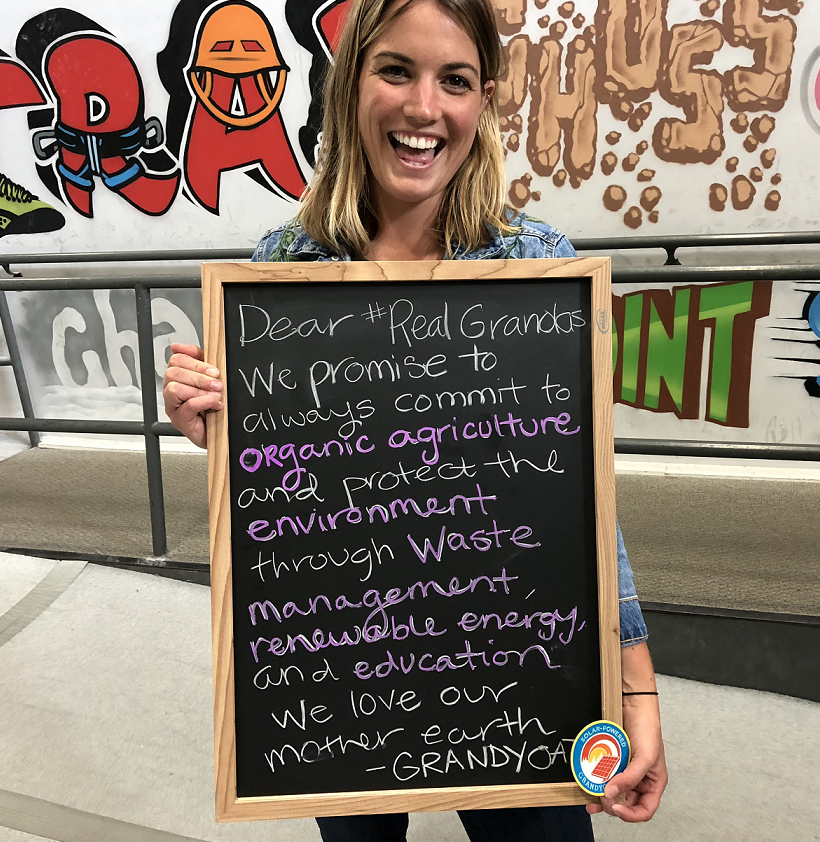 TRA
PHUSS
Cha
OINT
Dear #Real Grandas
We promise to
always commit to
ORganic agriculture
and protect the
environment
through Waste
management,
renewable energy,
and education
We love our
mother earth
-GRANDYOAT
SOLAR-POWERED
GRANDYO